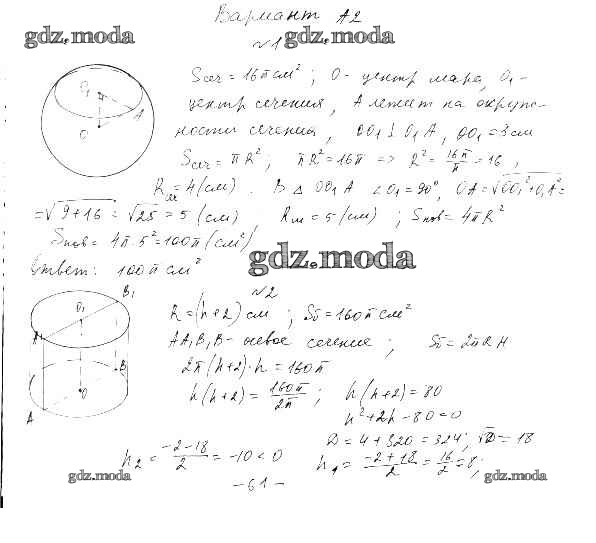 Вариант А2
gdz.moda
№1 gdz.moda
Sсеч = 16π см²; O - центр шара, O₁ -
центр сечения, A лежит на окруж-
ности сечения, OO₁ ⊥ O₁A, OO₁ = 3 см
Sсеч = πR²; πR² = 16π => R² = 16π/π = 16,
Rсеч = 4 (см). В △ OO₁A ∠O₁ = 90°, OA = √OO₁² + O₁A² =
= √9+16 = √25 = 5 (см) Rш = 5 (см); Sпов = 4πR²
Sпов = 4π·5² = 100π (см²)
Ответ: 100π см²
gdz.moda
O₁
O
A
№2
R = (h+2) см; Sб = 160π см²
AA₁B₁B - осевое сечение; Sб = 2πRH
2π(h+2)·h = 160π
h(h+2) = 160π/2π; h(h+2) = 80
h² + 2h - 80 = 0
D = 4 + 320 = 324; √D = 18
h₂ = -2-18/2 = -10 < 0 h₁ = -2+18/2 = 16/2 = 8;
B₁
O₁
A₁
B
O
A
gdz.moda
-61-
gdz.moda